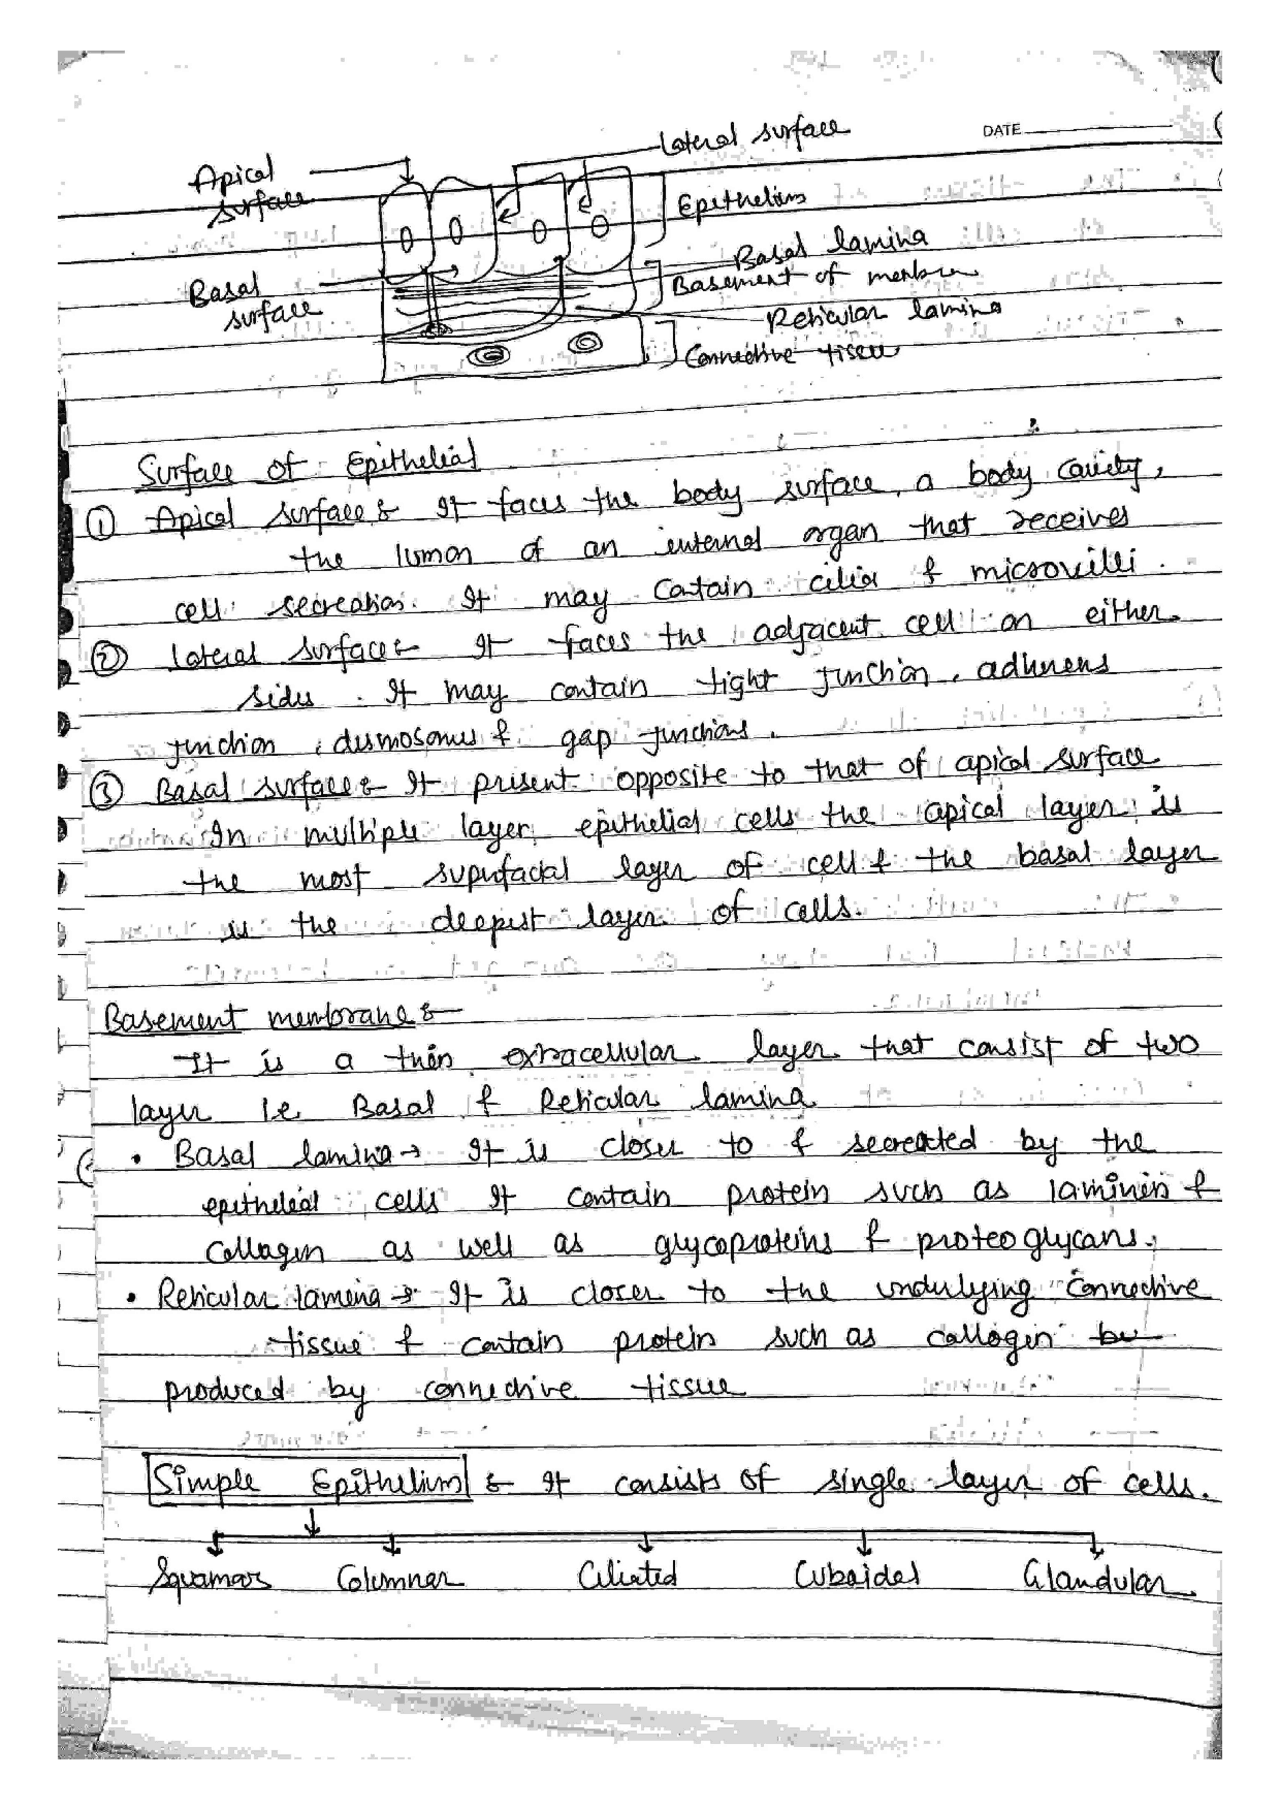 DATE
Lateral surface
Apical
surface
Epithelium
Basal lamina
Basal
surface
Basement of membrane
Reticular lamina
Connective tissue
Surface of Epithelial
① Apical surface :- It faces the body surface, a body cavity,
the lumon of an internal organ that receives
cell secreation. It may contain cilia & microvilli.
② Lateral surface :- It faces the adjacent cell on either
sides. It may contain tight junction, adherens
junction, desmosomes & gap junctions.
③ Basal surface :- It present opposite to that of apical surface
In multiple layer epithelial cells the apical layer is
the most superfacial layer of cell & the basal layer
is the deepest layer of cells.
Basement membrane :-
It is a thin extracellular layer that consist of two
layer i.e. Basal & Reticular lamina
• Basal lamina → It is closer to & secreated by the
epithelial cells It contain protein such as laminin &
Collagen as well as glycoproteins & proteoglycans.
• Reticular lamina → It is closer to the underlying connective
tissue & contain protein such as collagen be
produced by connective tissue
Simple Epithelium :- It consists of single layer of cells.
Squamas Columnar Ciliated Cuboidal Glandular